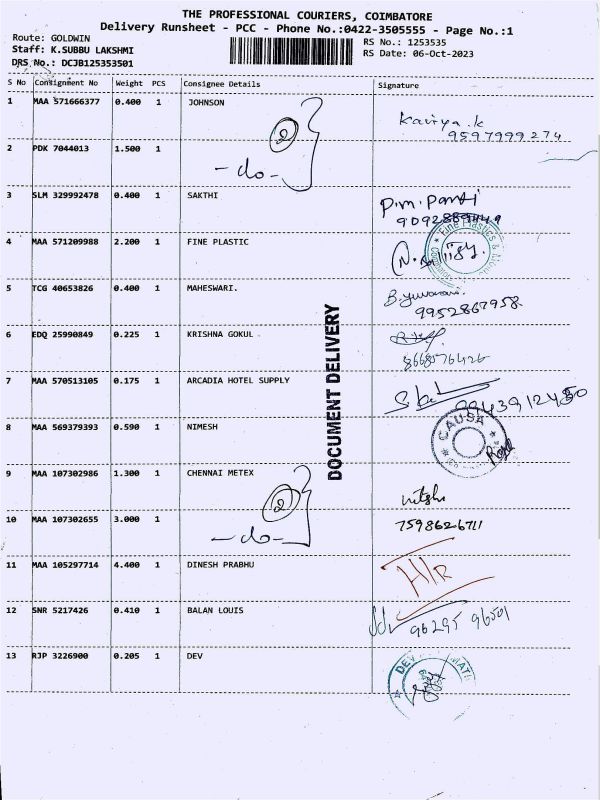 THE PROFESSIONAL COURIERS, COIMBATORE
Delivery Runsheet - PCC - Phone No.:0422-3505555 - Page No.:1
Route: GOLDWIN
RS No.: 1253535
Staff: K.SUBBU LAKSHMI
RS Date: 06-Oct-2023
DRS No.: DCJB125353501
S No Consignment No Weight PCS Consignee Details Signature
1 MAA 571666377 0.400 1 JOHNSON
Kaviya.k
9597999274
2
2 PDK 7044013 1.500 1
-do-
3 SLM 329992478 0.400 1 SAKTHI
4 MAA 571209988 2.200 1 FINE PLASTIC
5 TCG 40653826 0.400 1 MAHESWARI.
9952867958
6 EDQ 25990849 0.225 1 KRISHNA GOKUL
8668076426
DOCUMENT DELIVERY
7 MAA 570513105 0.175 1 ARCADIA HOTEL SUPPLY
8 MAA 569379393 0.590 1 NIMESH
CAUSA
9 MAA 107302986 1.300 1 CHENNAI METEX
2
10 MAA 107302655 3.000 1
7598626711
-do-
11 MAA 105297714 4.400 1 DINESH PRABHU
H/R
12 SNR 5217426 0.410 1 BALAN LOUIS
96295 96501
13 RJP 3226900 0.205 1 DEV